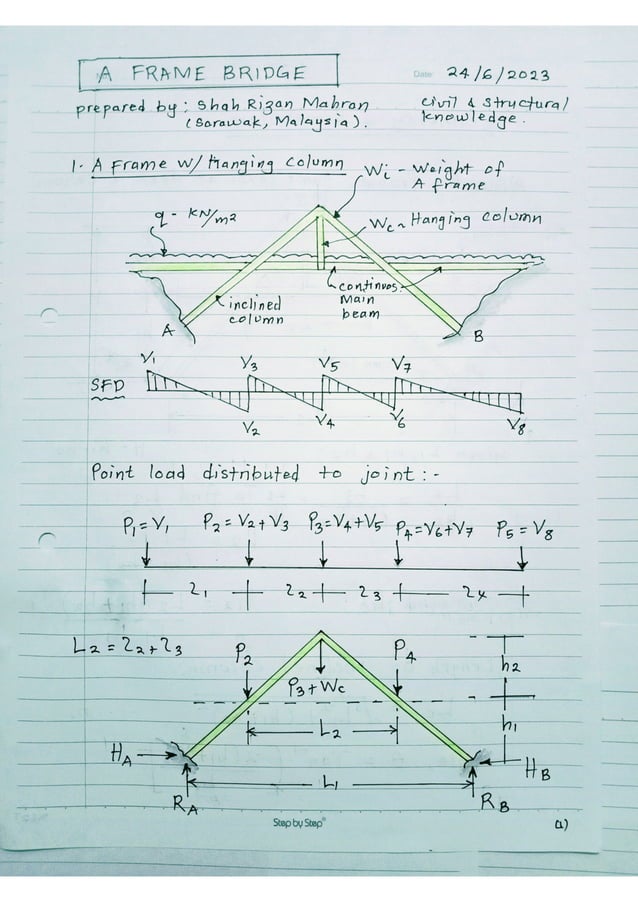 A FRAME BRIDGE
Date: 24/6/2023
prepared by: Shah Rizan Mahron
(Sarawak, Malaysia).
civil & structural
knowledge.
1. A Frame w/ Hanging column
Wi - Weight of
A frame
q - KN/m2
Wc ~ Hanging column
continuos
Main
beam
inclined
column
A
B
SFD
V1
V3
V5
V7
V2
V4
V6
V8
Point load distributed to joint :-
P1 = V1
P2 = V2+V3
P3 = V4+V5
P4 = V6+V7
P5 = V8
l1
l2
l3
l4
L2 = l2+l3
P2
P4
P3+Wc
h2
L2
h1
HA
HB
L1
RA
RB
Step by Step®
(1)